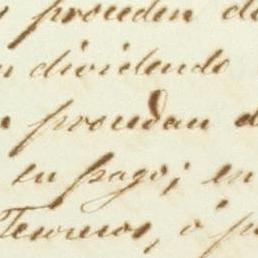 proceden d
dividendo
procedan d
en pago; en
Tesoreros, ó p